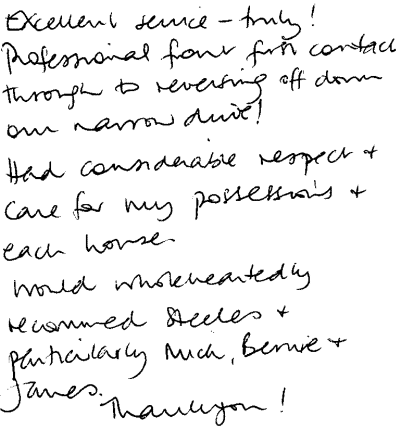 Excellent service - truly!
Professional from first contact
through to reversing off down
our narrow drive!
Had considerable respect +
care for my possessions +
each house.
Would wholeheartedly
recommed Steeles +
particularly Mick, Bernie +
James.
Thankyou!